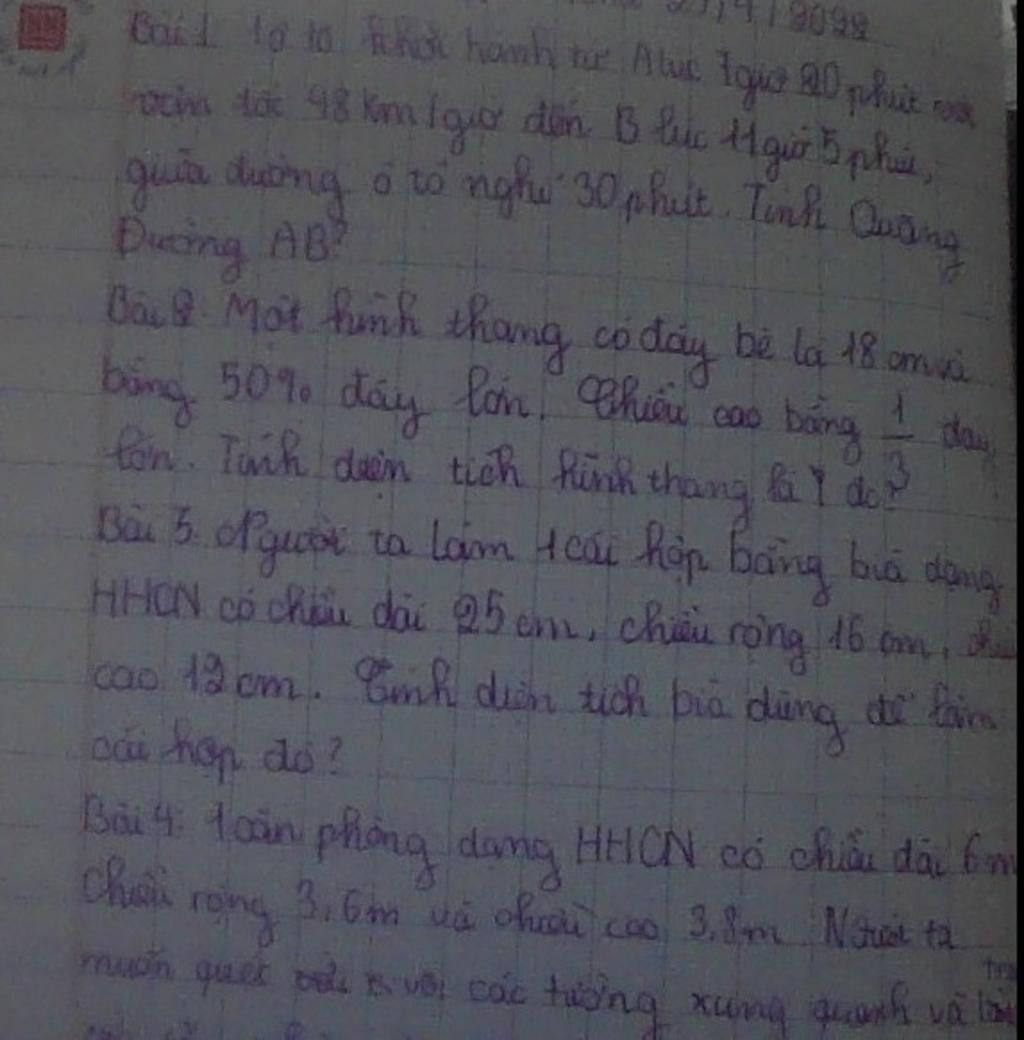 27/4/2022
Bài 1 1 ô tô khởi hành từ A lúc 7 giờ 20 phút với
vận tốc 48 km/giờ đến B lúc 11 giờ 5 phút,
giữa đường ô tô nghỉ 30 phút. Tính Quãng
Đường AB?
Bài 2. Một hình thang có đáy bé là 18 cm và
bằng 50% đáy lớn. Chiều cao bằng 1/3 đáy
lớn. Tính diện tích hình thang là? đó?
Bài 3. Người ta làm 1 cái hộp bằng bìa dạng
HHCN có chiều dài 25 cm, chiều rộng 16 cm, chiều
cao 12 cm. Tính diện tích bìa dùng để làm
cái hộp đó?
Bài 4: 1 căn phòng dạng HHCN có chiều dài 6m
Chiều rộng 3,6m và chiều cao 3,8m. Người ta
muốn quét vôi các tường xung quanh và